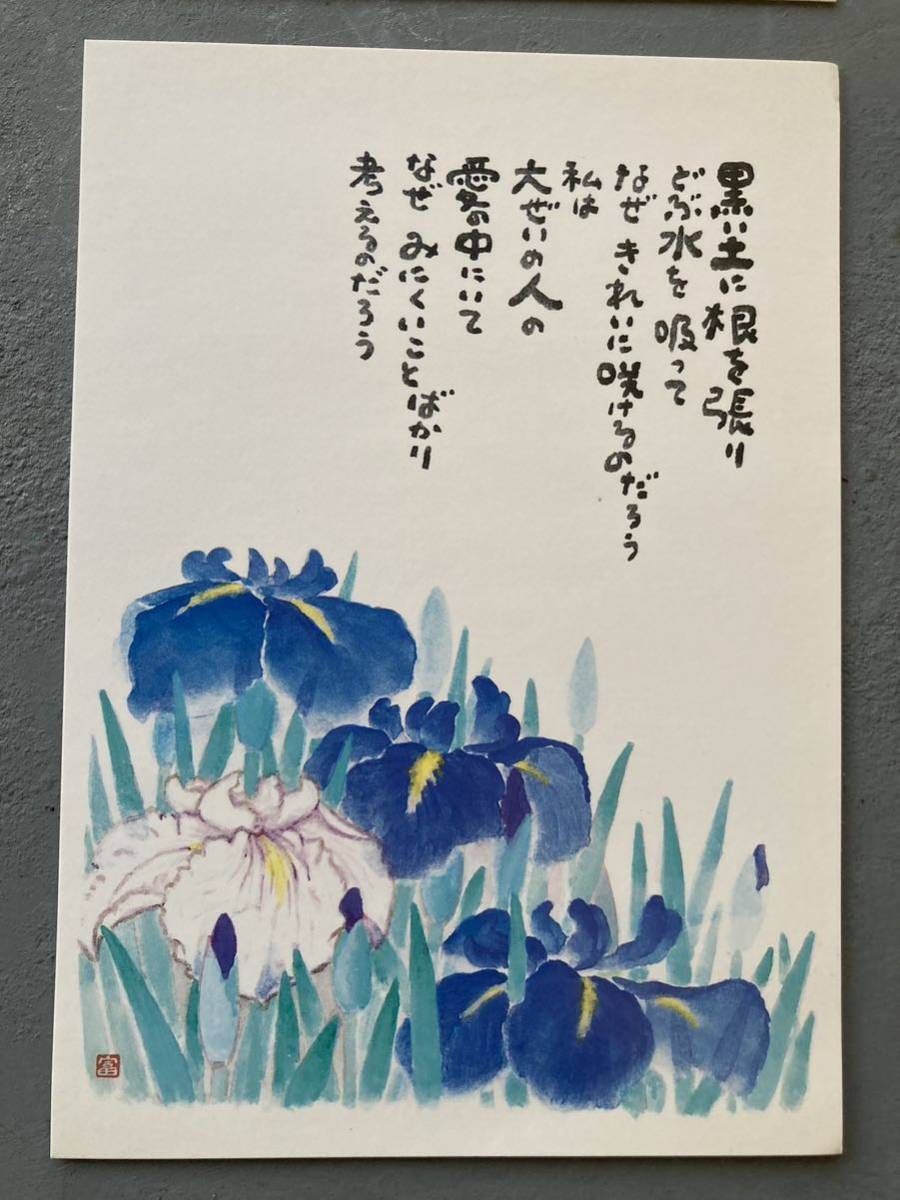 黒い土に根を張り
どぶ水を吸って
なぜ きれいに咲けるのだろう
私は
大ぜいの人の
愛の中にいて
なぜ みにくいことばかり
考えるのだろう
富